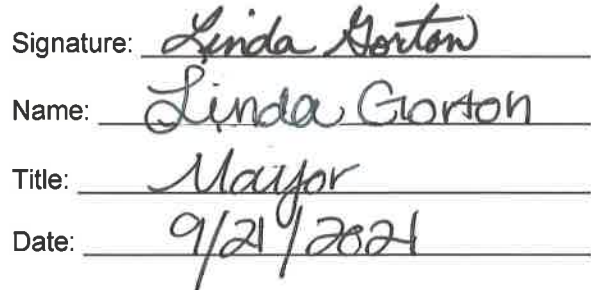 Signature: Linda Gorton
Name: Linda Gorton
Title: Mayor
Date: 9/21/2021